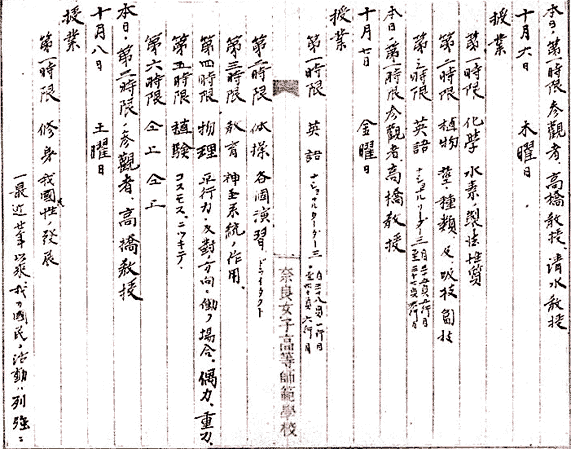 本日ノ第一時限参觀者、高橋教授、清水教授
十月六日 木曜日
授業
第一時限 化學 水素ノ製法性質
第二時限 植物 莖ノ種類及吸枝匐枝
第三時限 英語 ナショナルリーダー三
本日ノ第二時限参觀者、高橋教授
十月七日 金曜日
授業
第一時限 英語 ナショナルリーダー三
奈良女子高等師範學校
第二時限 体操 各個演習、
第三時限 教育 神圣系統ノ作用。
第四時限 物理 平行力、反對方向ニ働ク場合、偶力、重力、
第五時限 植験 コスモス、ニワキテ、
第六時限 仝上 仝上
本日ノ第二時限ノ参觀者、高橋教授
十月八日 土曜日
授業
第一時限 修身 我國民性ノ發展
一最近 以来我ガ國民ノ活動ハ列強ニ